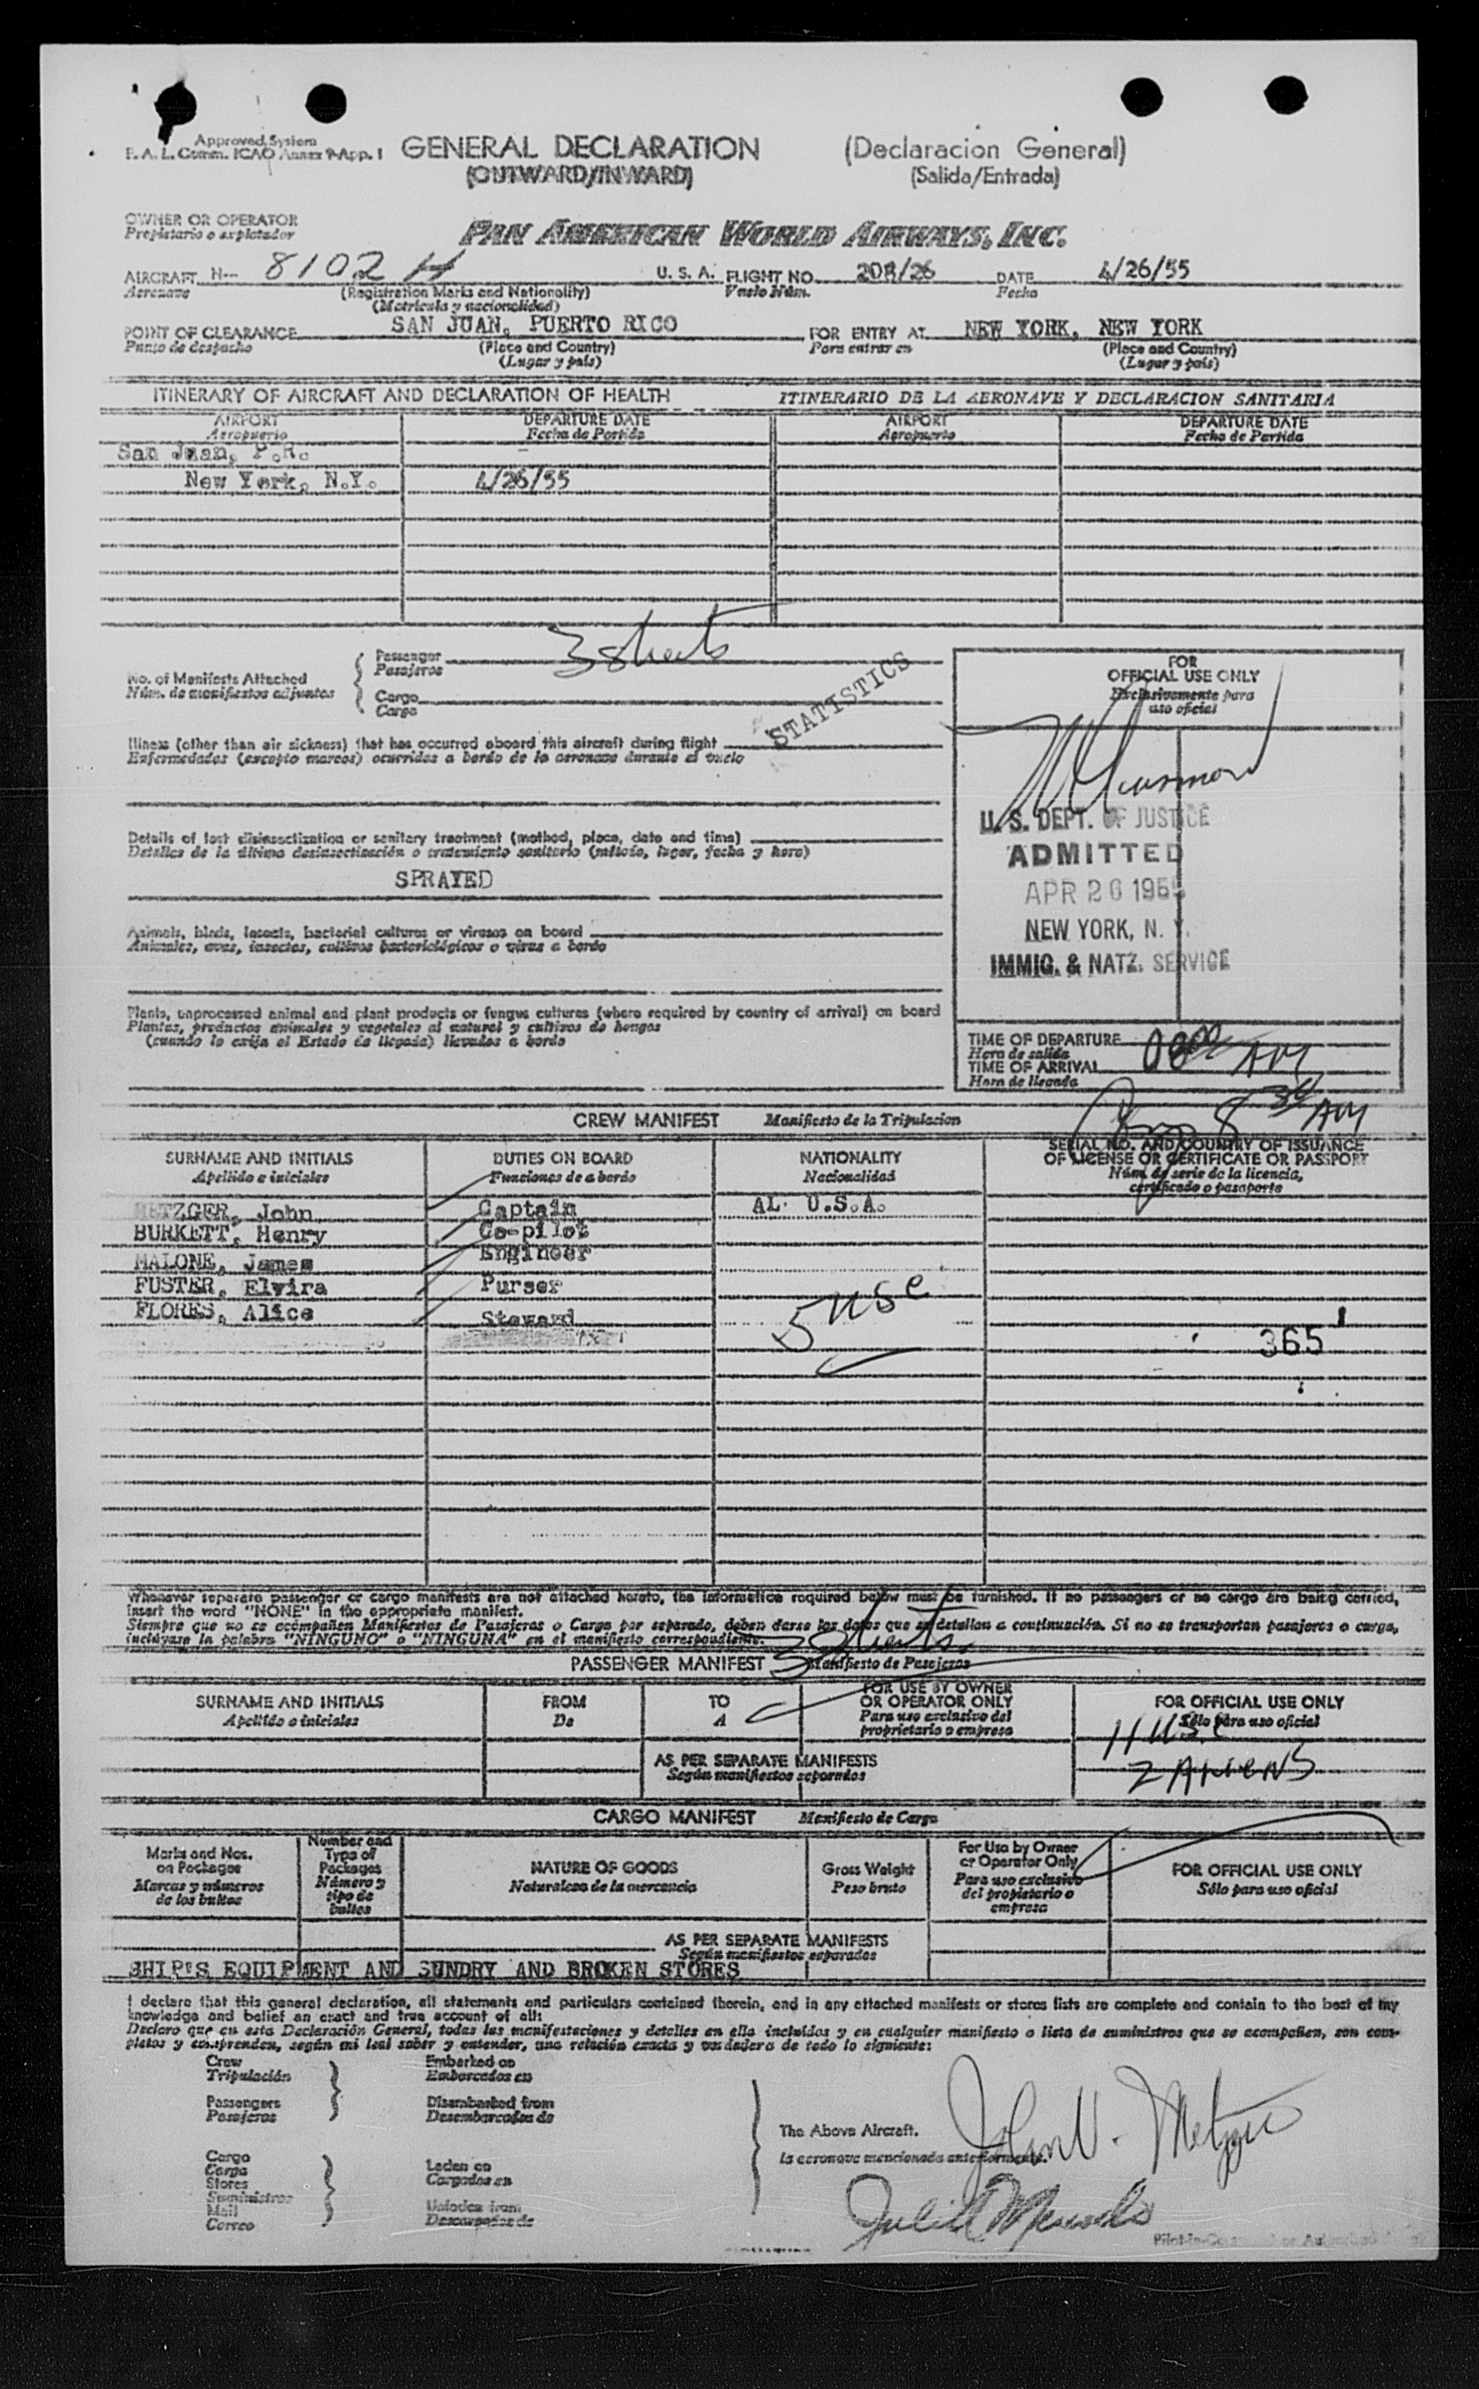 Approved System
F. A. L. Comm. ICAO Annex 9-App. 1
GENERAL DECLARATION
(Declaracion General)
(OUTWARD/INWARD)
(Salida/Entrada)
OWNER OR OPERATOR
Propietario o explotador
PAN AMERICAN WORLD AIRWAYS, INC.
AIRCRAFT N-- 8102 H U. S. A. FLIGHT NO. 208/26 DATE 4/26/55
Aeronave (Registration Marks and Nationality) Vuelo Núm. Fecha
(Matricula y nacionalidad)
POINT OF CLEARANCE SAN JUAN, PUERTO RICO FOR ENTRY AT NEW YORK, NEW YORK
Punto de despacho (Place and Country) Para entrar en (Place and Country)
(Lugar y país) (Lugar y país)
ITINERARY OF AIRCRAFT AND DECLARATION OF HEALTH ITINERARIO DE LA AERONAVE Y DECLARACION SANITARIA
AIRPORT DEPARTURE DATE AIRPORT DEPARTURE DATE
Aeropuerto Fecha de Partida Aeropuerto Fecha de Partida
San Juan, P.R.
New York, N.Y. 4/26/55
No. of Manifests Attached
Núm. de manifiestos adjuntos
Passenger 3 sheets
Pasajeros
Cargo
Carga
STATISTICS
Illness (other than air sickness) that has occurred aboard this aircraft during flight
Enfermedades (excepto mareos) ocurridas a bordo de la aeronave durante el vuelo
Details of last disinsectization or sanitary treatment (method, place, date and time)
Detalles de la última desinsectización o tratamiento sanitario (método, lugar, fecha y hora)
SPRAYED
Animals, birds, insects, bacterial cultures or viruses on board
Animales, aves, insectos, cultivos bacteriológicos o virus a bordo
Plants, unprocessed animal and plant products or fungus cultures (where required by country of arrival) on board
Plantas, productos animales y vegetales al natural y cultivos de hongos
(cuando lo exija el Estado de llegada) llevados a bordo
FOR
OFFICIAL USE ONLY
Exclusivamente para
uso oficial
U. S. DEPT. OF JUSTICE
ADMITTED
APR 26 1955
NEW YORK, N. Y.
IMMIG. & NATZ. SERVICE
TIME OF DEPARTURE
Hora de salida
TIME OF ARRIVAL
Hora de llegada
AM
8 30 AM
CREW MANIFEST Manifiesto de la Tripulacion
SURNAME AND INITIALS DUTIES ON BOARD NATIONALITY SERIAL NO. AND COUNTRY OF ISSUANCE
OF LICENSE OR CERTIFICATE OR PASSPORT
Apellido e iniciales Funciones de a bordo Nacionalidad Núm. de serie de la licencia,
certificado o pasaporte
METZGER, John Captain AL U.S.A.
BURKETT, Henry Co-pilot
MALONE, James Engineer
FUSTER, Elvira Purser
FLORES, Alice Steward
5 usc
365
Whenever separate passenger or cargo manifests are not attached hereto, the information required below must be furnished. If no passengers or no cargo are being carried,
insert the word "NONE" in the appropriate manifest.
Siempre que no se acompañen Manifiestos de Pasajeros o Carga por separado, deben darse los datos que se detallan a continuación. Si no se transportan pasajeros o carga,
inclúyase la palabra "NINGUNO" o "NINGUNA" en el manifiesto correspondiente.
3 sheets
PASSENGER MANIFEST Manifiesto de Pasajeros
SURNAME AND INITIALS FROM TO FOR USE BY OWNER
OR OPERATOR ONLY FOR OFFICIAL USE ONLY
Apellido o iniciales De A Para uso exclusivo del
propietario o empresa Sólo para uso oficial
AS PER SEPARATE MANIFESTS
Según manifiestos separados
2 Aliens
CARGO MANIFEST Manifiesto de Carga
Marks and Nos.
on Packages
Marcas y números
de los bultos
Number and
Type of
Packages
Número y
tipo de
bultos
NATURE OF GOODS
Naturaleza de la mercancia
Gross Weight
Peso bruto
For Use by Owner
or Operator Only
Para uso exclusivo
del propietario o
empresa
FOR OFFICIAL USE ONLY
Sólo para uso oficial
AS PER SEPARATE MANIFESTS
Según manifiestos separados
SHIP'S EQUIPMENT AND SUNDRY AND BROKEN STORES
I declare that this general declaration, all statements and particulars contained therein, and in any attached manifests or stores lists are complete and contain to the best of my
knowledge and belief an exact and true account of all:
Declaro que en esta Declaración General, todas las manifestaciones y detalles en ella incluidos y en cualquier manifiesto o lista de suministros que se acompañen, son com-
pletos y comprenden, según mi leal saber y entender, una relación exacta y verdadera de todo lo siguiente:
Crew
Tripulación
Passengers
Pasajeros
Embarked on
Embarcados en
Disembarked from
Desembarcados de
Cargo
Carga
Stores
Suministros
Mail
Correo
Laden on
Cargados en
Unladen from
Descargados de
The Above Aircraft.
la aeronave mencionada anteriormente.
John V. Metzger